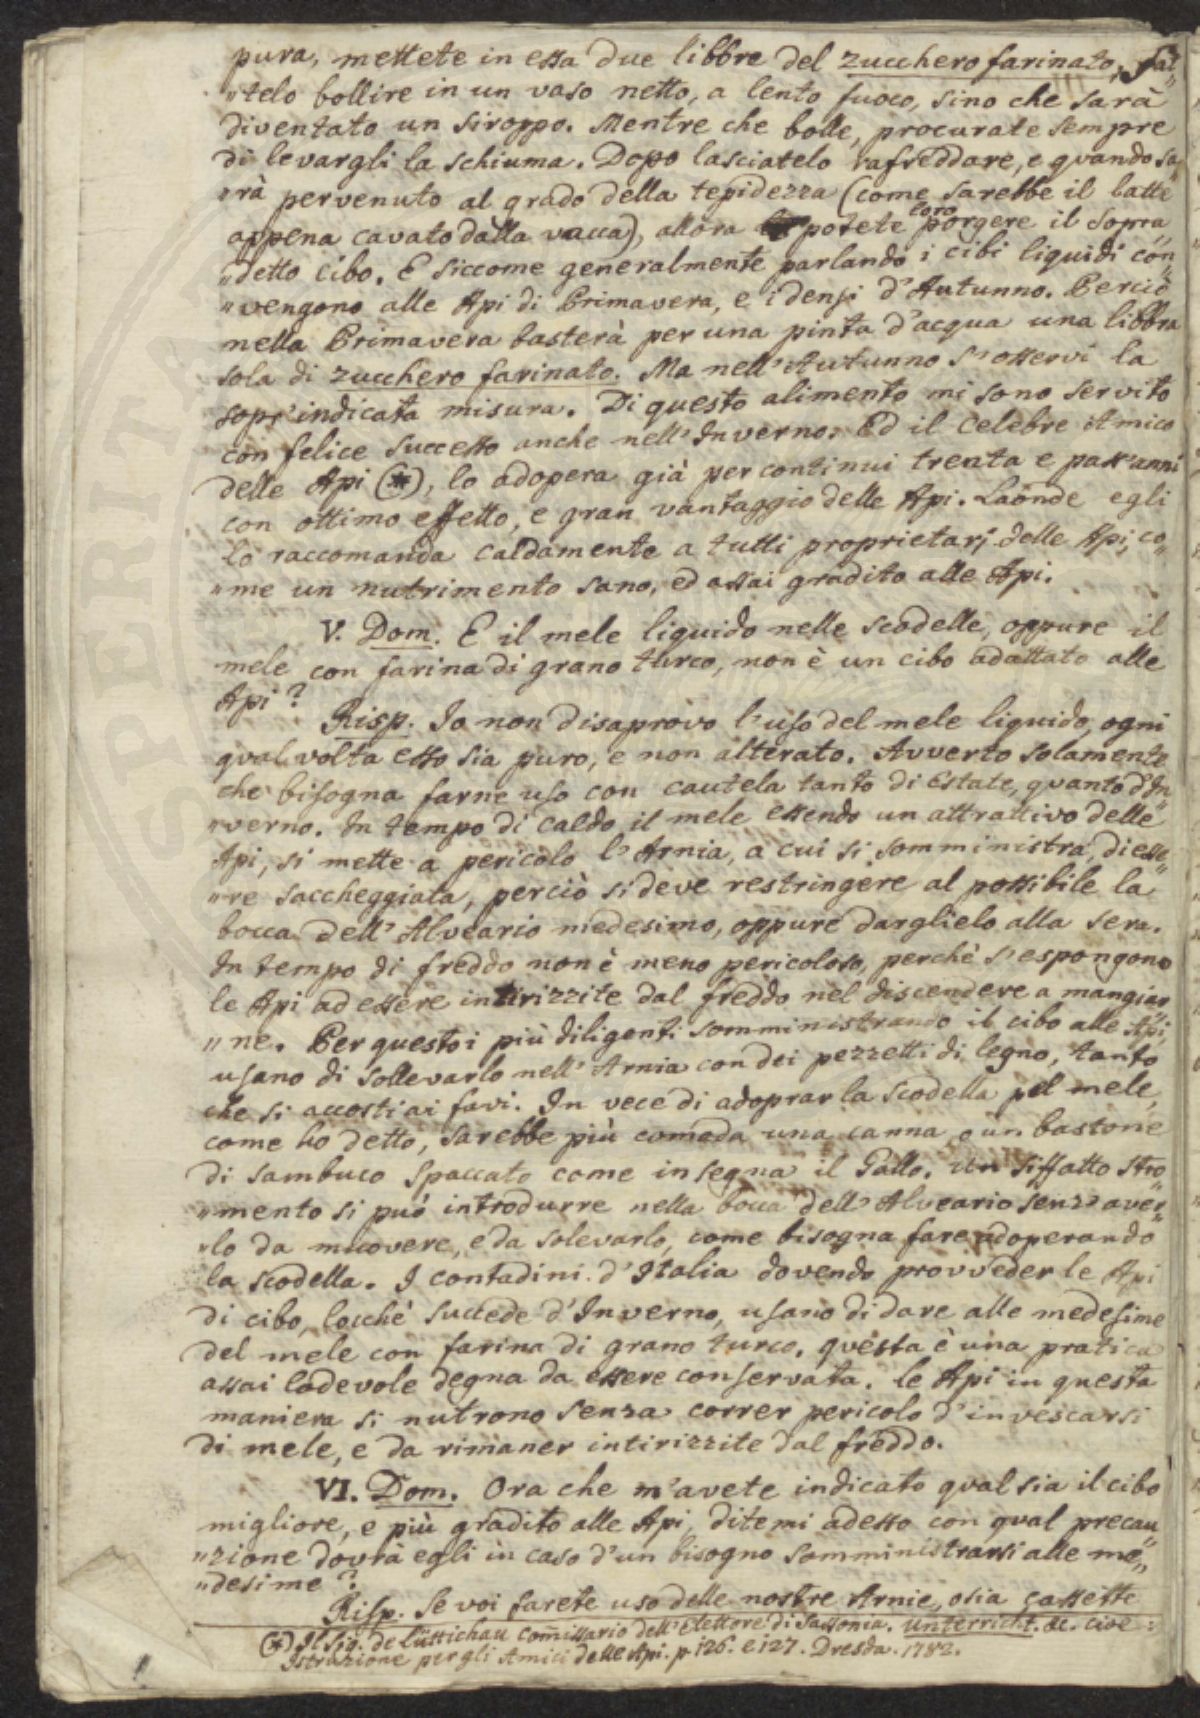 pura, mettete in essa due libbre del zucchero farinato, fa-
"telo bollire in un vaso netto, a lento fuoco, sino che sarà
diventato un siroppo. Mentre che bolle, procurate sempre
di levargli la schiuma. Dopo lasciatelo rafreddare, e quando sa„
"rà pervenuto al grado della tepidezza (come sarebbe il latte
appena cavato dalla vacca), allora potete loro porgere il sopra„
"detto cibo. E siccome generalmente parlando i cibi liquidi con„
"vengono alle Api di Primavera, e i densi d'Autunno. Perciò
nella Primavera basterà per una pinta d'acqua una libbra
sola di zucchero farinato. Ma nell'Autunno s'osservi la
sopr'indicata misura. Di questo alimento mi sono servito
con felice successo anche nell'Inverno. Ed il celebre Amico
delle Api (*), lo adopera già per continui trenta e pass'anni
con ottimo effetto, e gran vantaggio delle Api. Laonde egli
lo raccomanda caldamente a tutti proprietarj delle Api, co„
"me un nutrimento sano, ed assai gradito alle Api.
V. Dom. E il mele liquido nelle scodelle, oppure il
mele con farina di grano turco, non è un cibo adattato alle
Api?
Risp. Io non disaprovo l'uso del mele liquido, ogni
qual volta esso sia puro, e non alterato. Avverto solamente
che bisogna farne uso con cautela tanto di Estate, quanto d'In„
"verno. In tempo di caldo il mele essendo un attrattivo delle
Api, si mette a pericolo l'Arnia, a cui si somministra, di esse„
"re saccheggiata, perciò si deve restringere al possibile la
bocca dell'Alveario medesimo, oppure darglielo alla sera.
In tempo di freddo non è meno pericoloso, perchè s'espongono
le Api ad essere intirizzite dal freddo nel discendere a mangiar„
"ne. Per questo i più diligenti somministrando il cibo alle Api,
usano di sollevarlo nell'Arnia con dei pezzetti di legno, tanto
che si accosti ai favi. In vece di adoprar la scodella pel mele,
come ho detto, sarebbe più comoda una canna, o un bastone
di sambuco spaccato come insegna il Gallo. Un siffatto stro„
"mento si può introdurre nella bocca dell'Alveario senz'aver„
"lo da muovere, e da solevarlo, come bisogna fare adoperando
la scodella. I contadini d'Italia dovendo provveder le Api
di cibo, locchè succede d'Inverno, usano di dare alle medesime
del mele con farina di grano turco. questa è una pratica
assai lodevole degna da essere conservata. le Api in questa
maniera si nutrono senza correr pericolo d'invescarsi
di mele, e da rimaner intirizzite dal freddo.
VI. Dom. Ora che m'avete indicato qual sia il cibo
migliore, e più gradito alle Api, ditemi adesso con qual precau„
"zione dovrà egli in caso d'un bisogno somministrarsi alle me„
"desime?
Risp. Se voi farete uso delle nostre Arnie, osia cassette
(*) Il Sig. de Lüttichau Com̃issario dell'Elettore di Sassonia. Unterricht. &c. cioè:
Istruzione per gli Amici delle Api. p 126. e 127. Dresda. 1782.